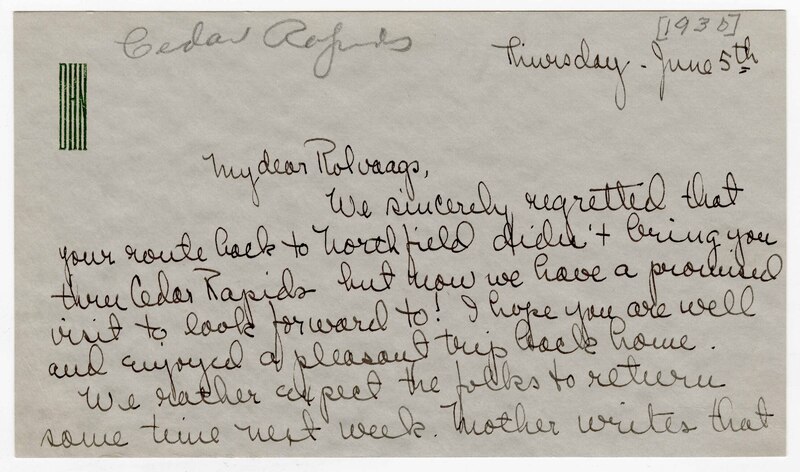 Cedar Rapids
Thursday - June 5th
My dear Rolvaags,
We sincerely regretted that
your route back to Northfield didn't bring you
thru Cedar Rapids but now we have a promised
visit to look forward to! I hope you are well
and enjoyed a pleasant trip back home.
We rather expect the folks to return
some time next week. Mother writes that